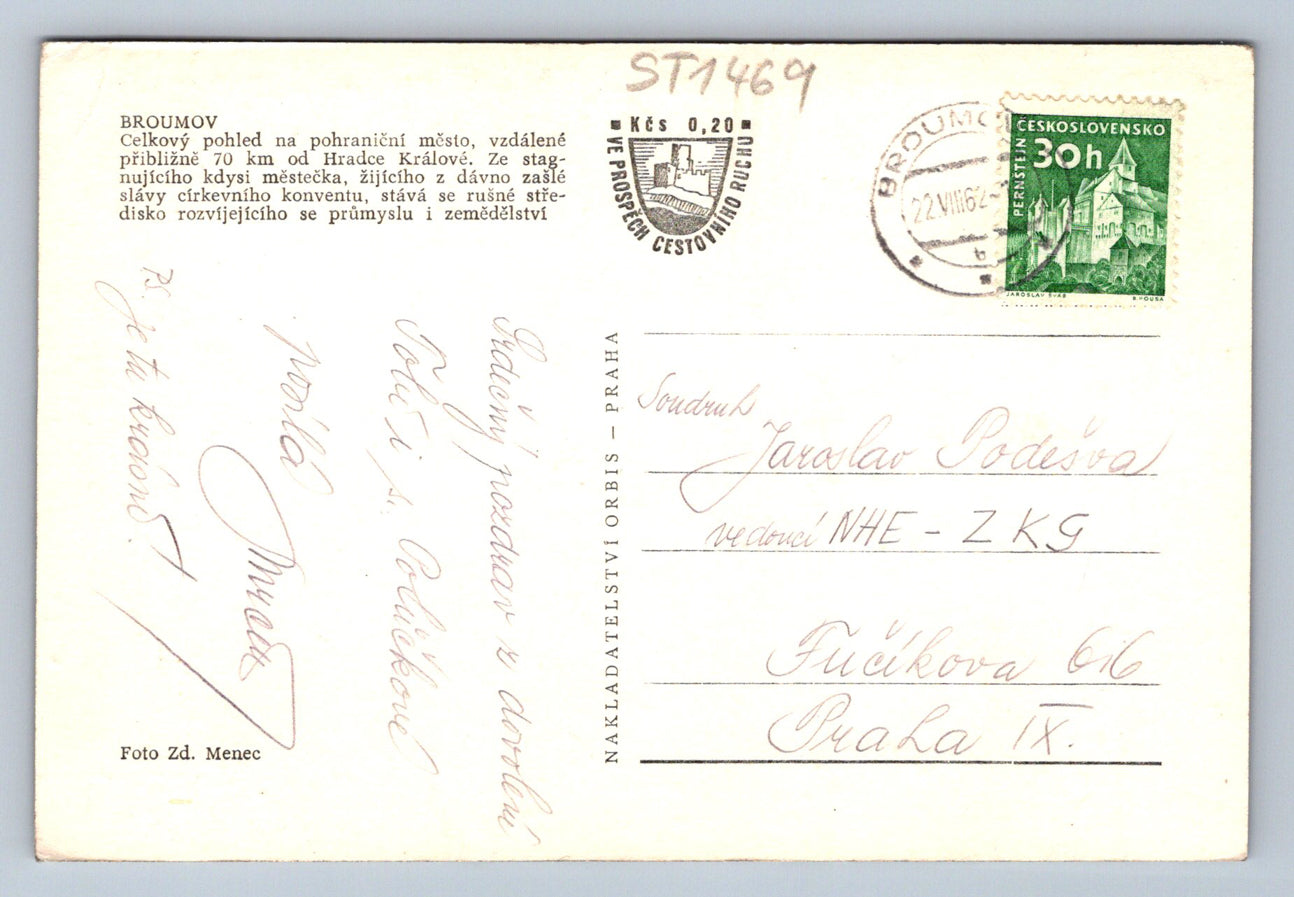 ST1469
BROUMOV
Celkový pohled na pohraniční město, vzdálené
přibližně 70 km od Hradce Králové. Ze stag-
nujícího kdysi městečka, žijícího z dávno zašlé
slávy církevního konventu, stává se rušné stře-
disko rozvíjejícího se průmyslu i zemědělství
Kčs 0,20
VE PROSPĚCH CESTOVNÍHO RUCHU
BROUMOV
22.VIII.62
ČESKOSLOVENSKO
30h
PERNŠTEJN
JAROSLAV ŠVÁB
B. HOUSA
Srdečný pozdrav z dovolené
Tobě i s. Poláčkové
posílá
PS. Je tu krásně
NAKLADATELSTVÍ ORBIS – PRAHA
Soudruh
Jaroslav Poděšva
vedoucí NHE - ZKG
Fučíkova 616
Praha IX.
Foto Zd. Menec